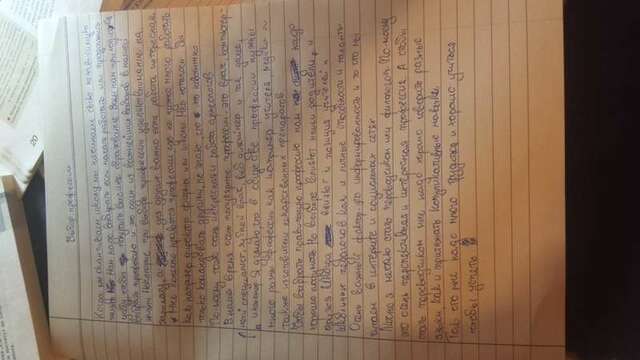 Выбор профессии
Когда мы оканчиваем школу мы начинаем свою независимую
жизнь Нам надо выбирать если начать работать или продолжить
учёбу чтобы получить высшее образование Всем нам приходится
выбрать профессию и это один из важнейших выборов в нашей
жизни Некоторые при выборе профессии
зарплату, а для других важно есть работа интересная.
Мне нравятся профессии где не нужно много работать
как например директор фирмы или школы Мне хотелось бы
только командовать другими, не знаю, что
По-моему тоже очень интересная работа археологов
В наше время есть популярные профессии это врач, компьютер-
ный специалист, зубной врач, веб дизайнер и так далее,
и инженер Я думаю что в обществе профессии нужны
много разны профессии как например учителя
также изготовители лекарственных препаратов.
Чтобы выбрать правильную профессию нам надо
хорошо подумать На выборе влияют наши родители, и
друзья Иногда влияют и позиция учителей и
школьных педагогов как и личные способности и таланты
Очень важный фактор это информированность и то что мы
читаем в интернете и социальных сетях
Лично я желаю стать переводчиком или филологом. По-моему
это очень перспективная и интересная профессия. А чтобы
стать переводчиком мне надо хорошо говорить разные
языки как и коммуникативные навыки
Так что мне надо много трудится и хорошо учиться
чтобы успеть
20